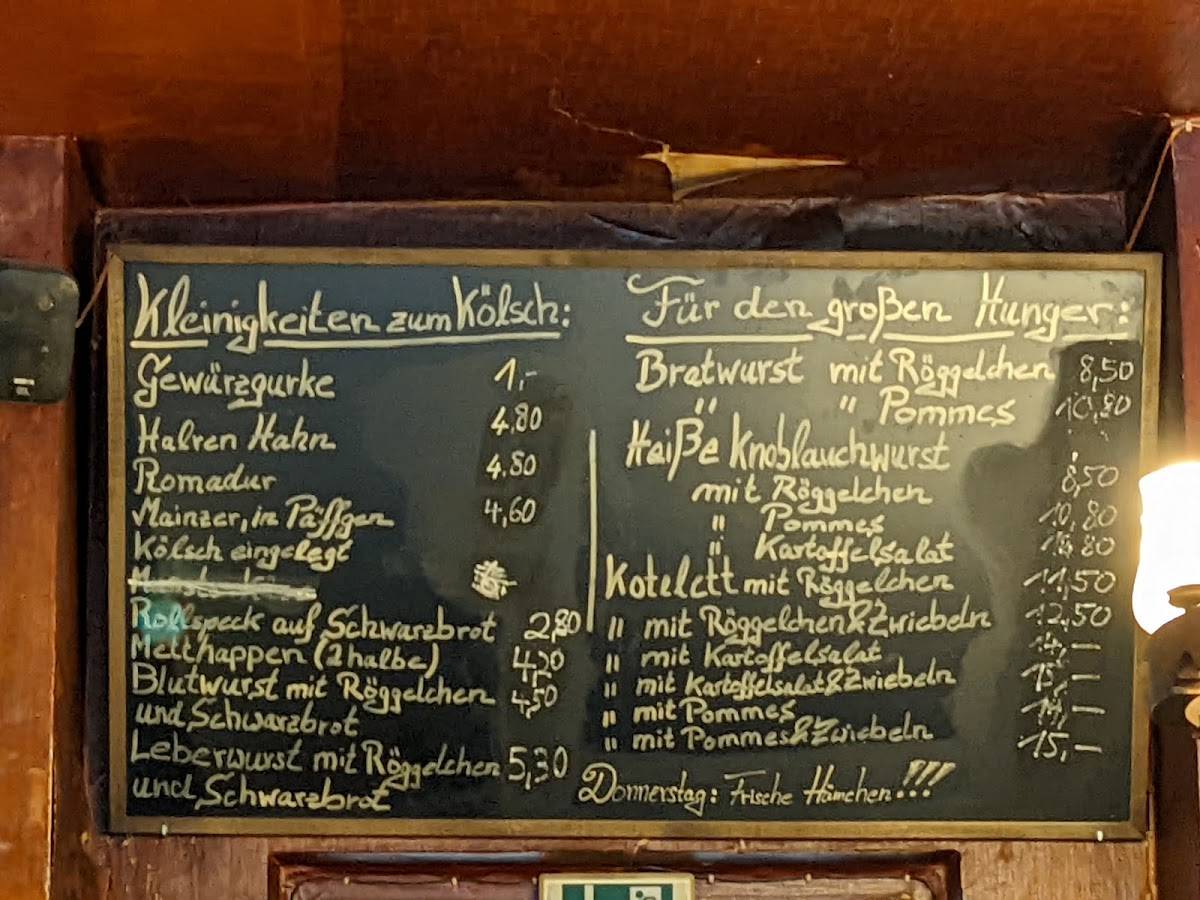 Kleinigkeiten zum Kölsch:
Gewürzgurke 1,-
Halven Hahn 4,80
Romadur 4,80
Mainzer, in Päffgen 4,60
Kölsch eingelegt
Rollspeck auf Schwarzbrot 2,80
Metthappen (2 halbe)
Blutwurst mit Röggelchen 4,50
und Schwarzbrot
Leberwurst mit Röggelchen 5,30
und Schwarzbrot
Für den großen Hunger:
Bratwurst mit Röggelchen 8,50
" " Pommes 10,80
Heiße Knoblauchwurst
mit Röggelchen 8,50
" Pommes 10,80
" Kartoffelsalat
Kotelett mit Röggelchen 11,50
" mit Röggelchen & Zwiebeln 12,50
" mit Kartoffelsalat 14,—
" mit Kartoffelsalat & Zwiebeln 15,—
" mit Pommes 14,—
" mit Pommes & Zwiebeln 15,—
Donnerstag: Frische Hämchen!!!